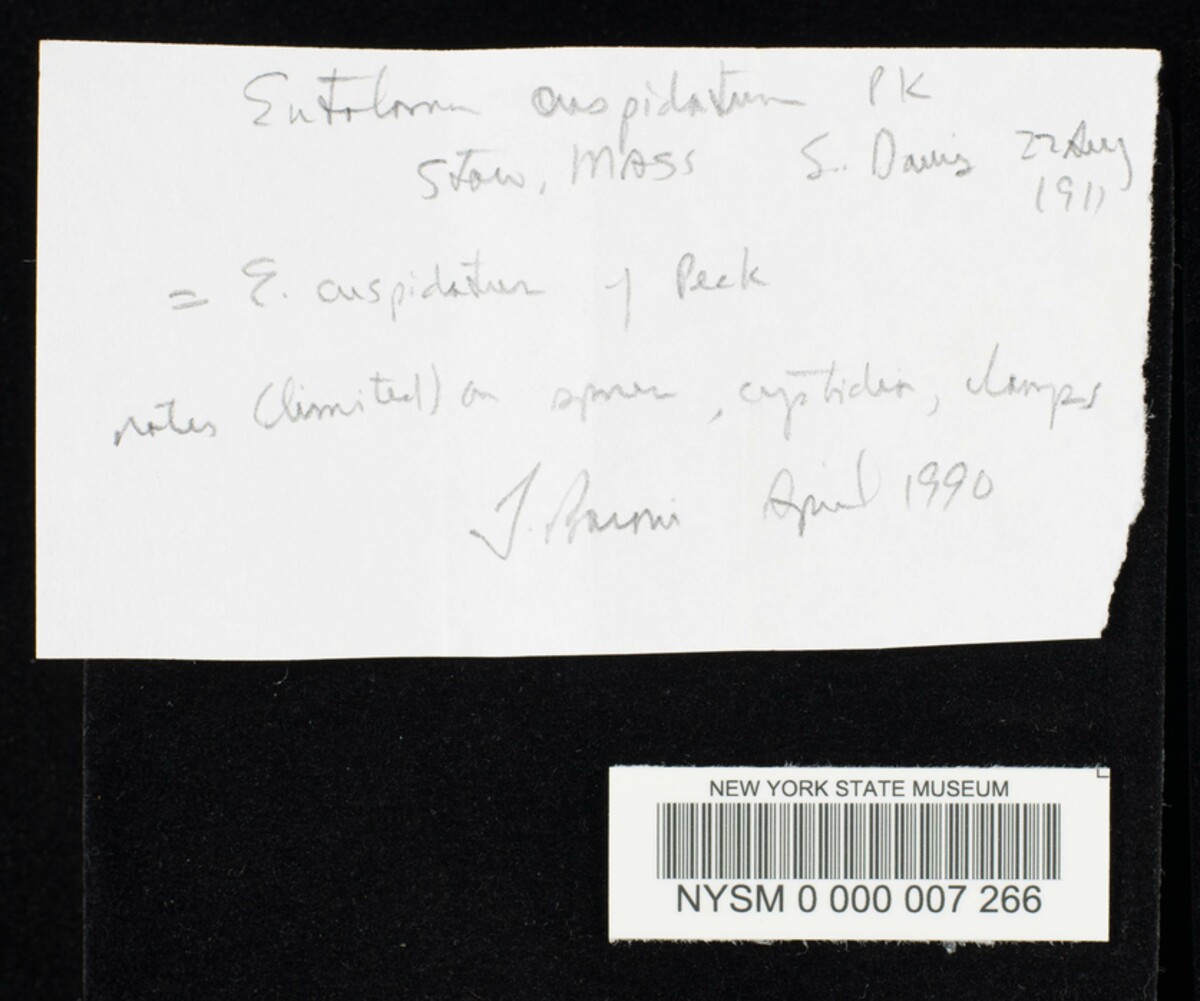 Entoloma cuspidatum PK
Stow, MASS S. Davis 22 Aug
1911
= E. cuspidatum of Peck
notes (limited) on spores, cystidia, clamps
T. Baroni April 1990
NEW YORK STATE MUSEUM
NYSM 0 000 007 266